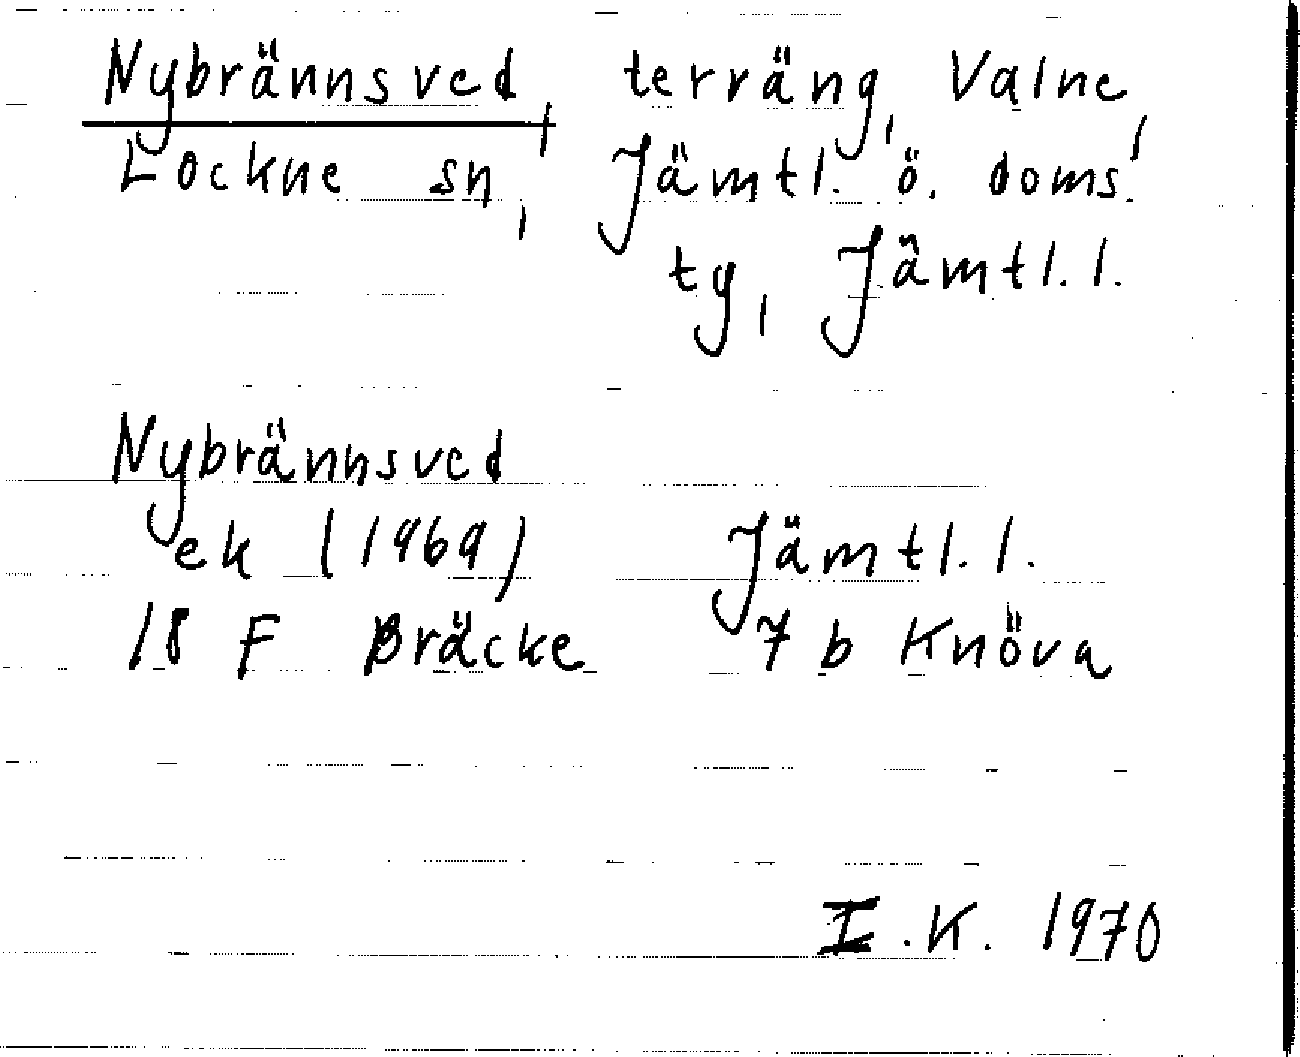 Nybrännsved, terräng, Valne,
Lockne sn, Jämtl. ö. doms.
ty, Jämtl. l.
Nybrännsved
ek (1969) Jämtl. l.
18 F Bräcke 7 b Knöva
I.K. 1970